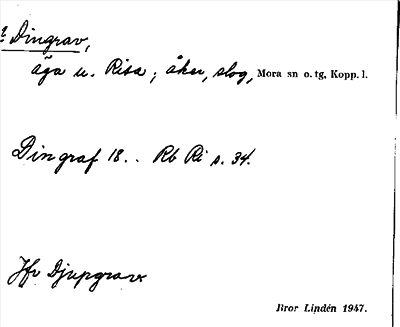 ? Dingrav,
äga u. Risa; åker, slog, Mora sn o. tg, Kopp. l.
Dingraf 18.. Rb Ri s. 34.
Jfr Djupgrav
Bror Lindén 1947.